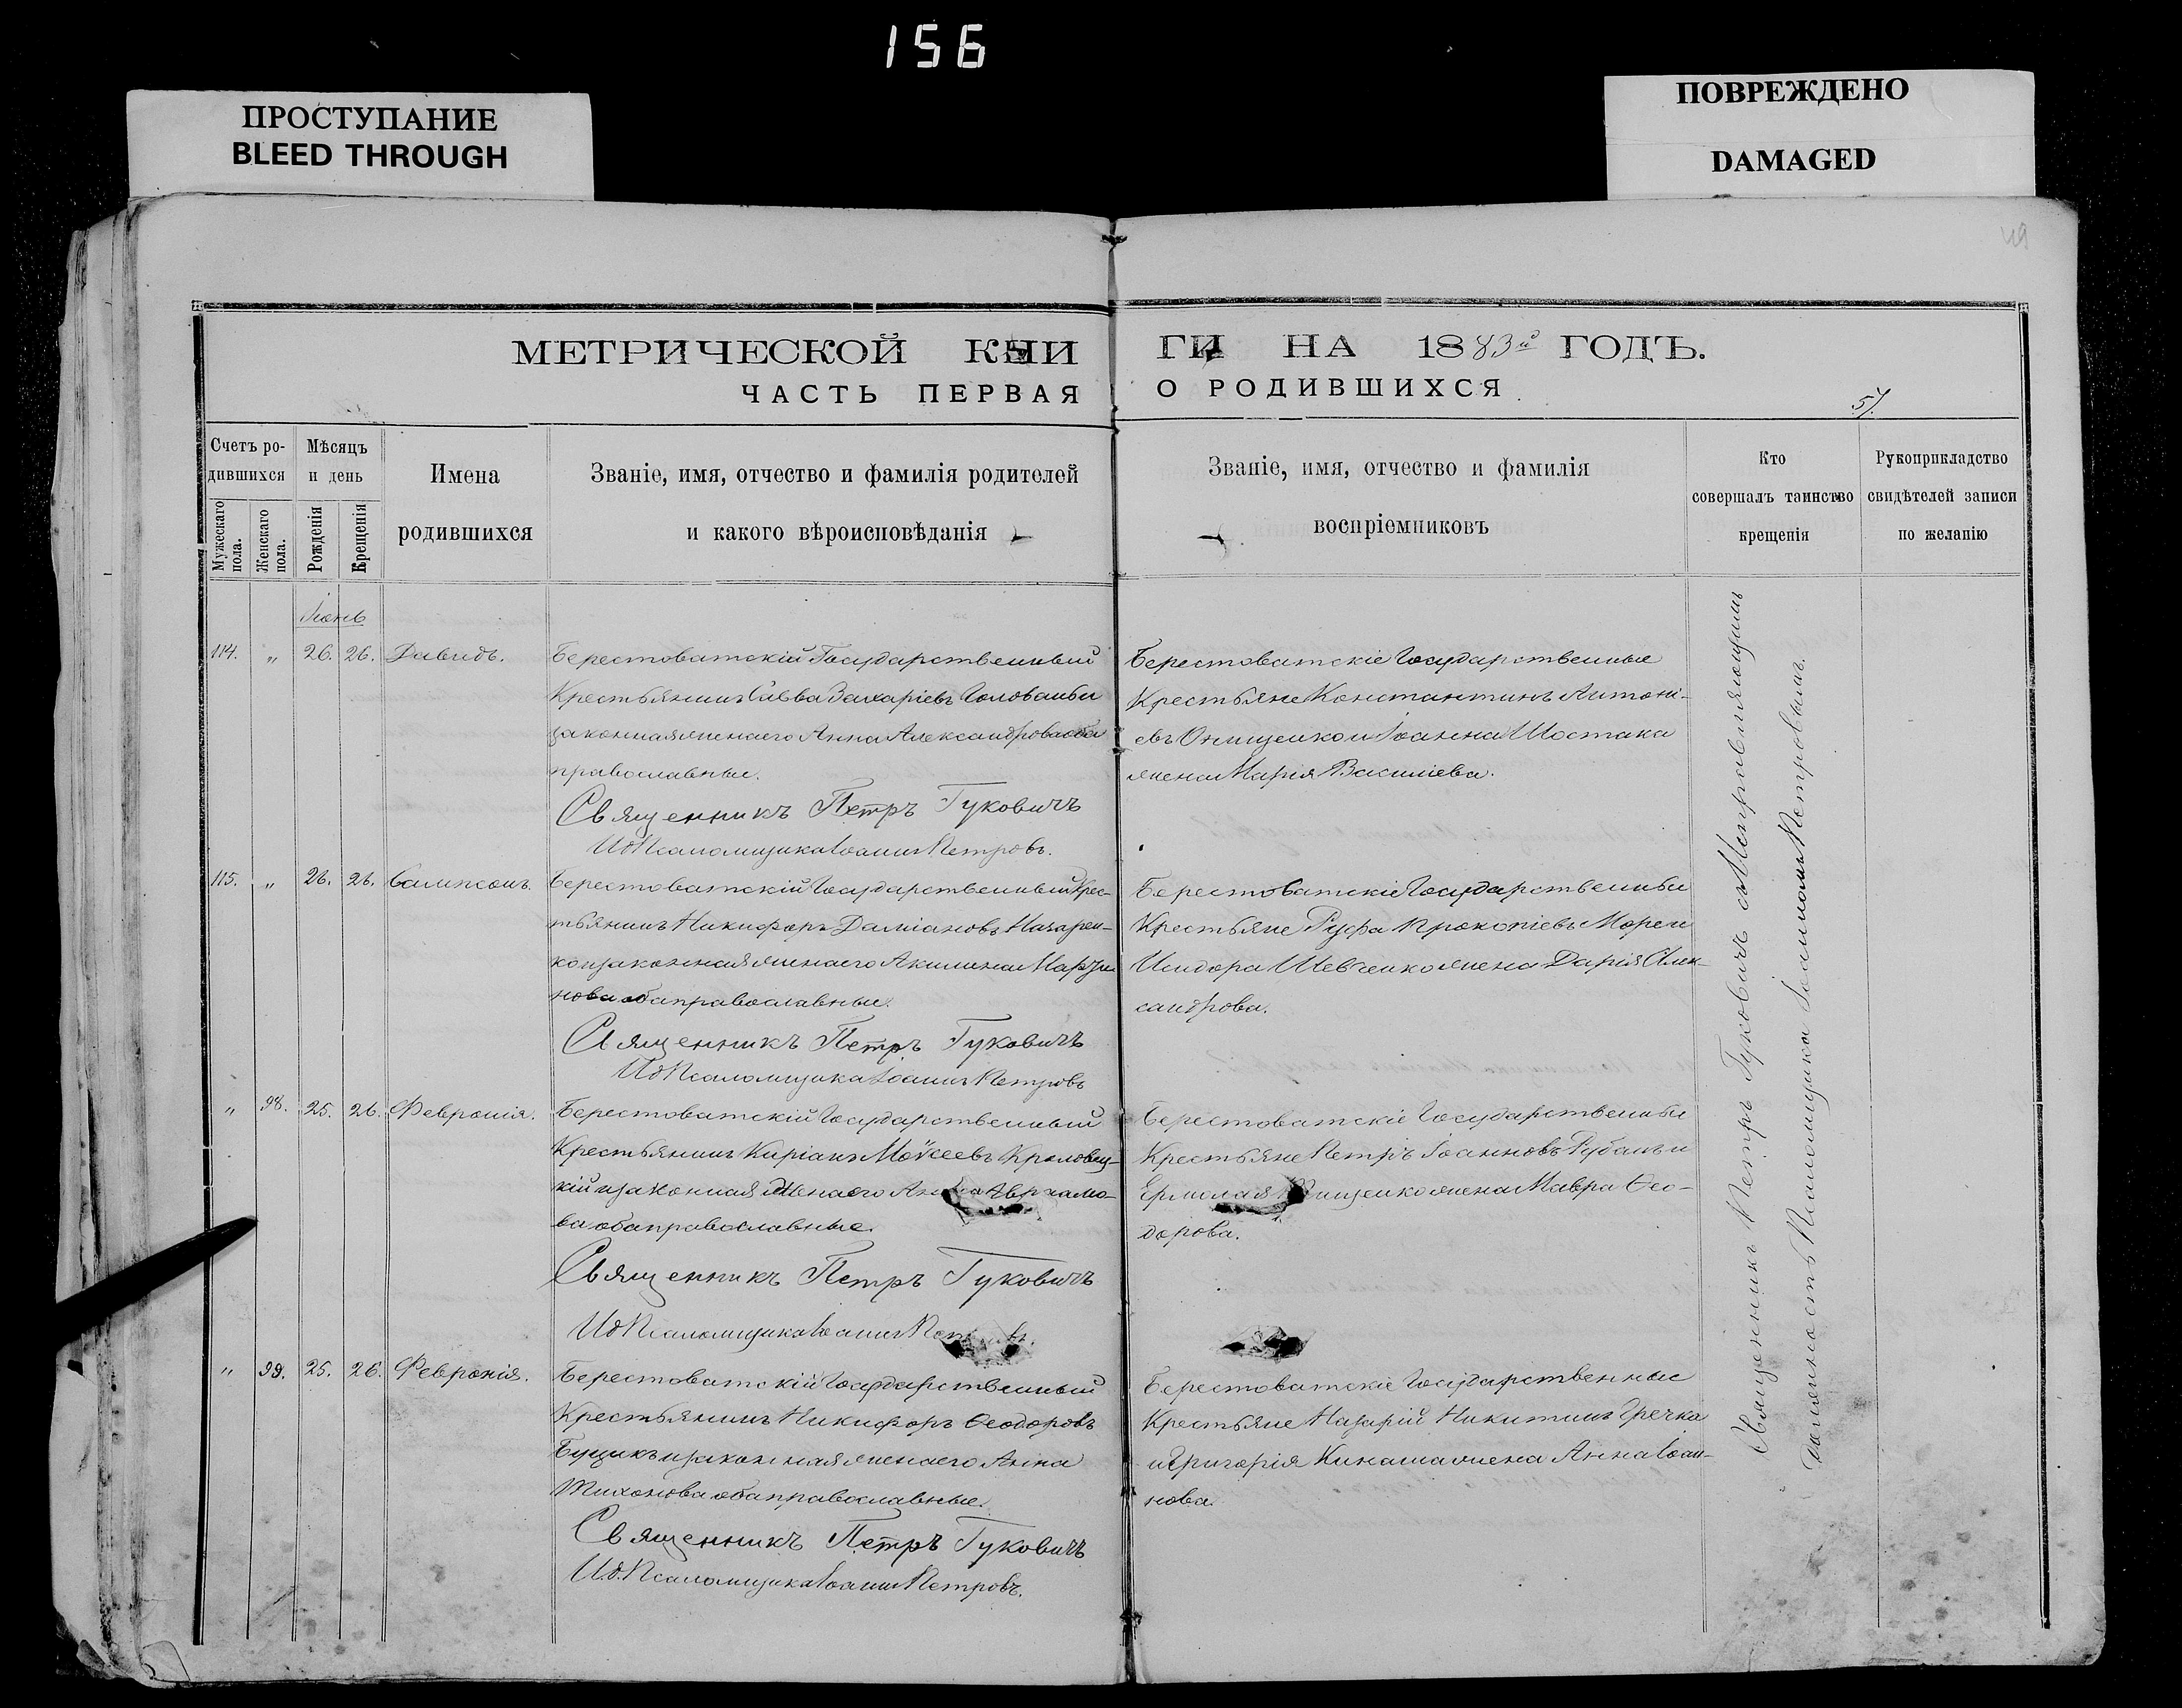 156
ПРОСТУПАНИЕ
BLEED THROUGH
ПОВРЕЖДЕНО
DAMAGED
49
МЕТРИЧЕСКОЙ КНИ
ГИ НА 1883й ГОДЪ.
ЧАСТЬ ПЕРВАЯ
О РОДИВШИХСЯ
57.
Счетъ ро-
дившихся
Мужескаго пола.
Женскаго пола.
Мѣсяцъ
и день
Рожденія
Крещенія
Имена
родившихся
Званіе, имя, отчество и фамилія родителей
и какого вѣроисповѣданія
Званіе, имя, отчество и фамилія
воспріемниковъ
Кто
совершалъ таинство
крещенія
Рукоприкладство
свидѣтелей записи
по желанію
Іюнь
114. „ 26. 26. Давидъ.
Берестоватскій Государственный
Крестьянинъ Савва Захаріевъ Голованьи
законная жена его Анна Александрова оба
православные.
Священникъ Петръ Гуковичъ
И д Псаломщика Іоаннъ Петровъ.
Берестоватскіе Государственные
Крестьяне Константинъ Антоні-
евъ Онищенко и Іоанна Шостака
жена Марія Василіева.
115. „ 26. 26. Сампсонъ.
Берестоватскій Государственный Крес-
тьянинъ Никифоръ Даміановъ Назарен-
ко и законная жена его Акилина Марти-
нова оба православные.
Священникъ Петръ Гуковичъ
И д Псаломщика Іоаннъ Петровъ
Берестоватскіе Государственные
Крестьяне Руфъ Прокопіевъ
Исидора Шевченко жена Дарія Алек-
сандрова.
„ 98. 25. 26. Февронія.
Берестоватскій Государственный
Крестьянинъ Киріанъ Моѵсеевъ Кроловец-
кій и законная жена его Аврамо-
ва оба православные.
Священникъ Петръ Гуковичъ
И д Псаломщика Іоаннъ Петровъ.
Берестоватскіе Государственные
Крестьяне Петръ Іоанновъ Рубанъ и
Ермолая жена Мавра Ѳео-
дорова.
„ 99. 25. 26. Февронія.
Берестоватскій Государственный
Крестьянинъ Никифоръ Ѳеодоровъ
Буцикъ и законная жена его Анна
Тихонова оба православные.
Священникъ Петръ Гуковичъ
И.д. Псаломщика Іоаннъ Петровъ.
Берестоватскіе Государственные
Крестьяне Назарій Никитинъ Гречка
и Григорія Кинаша жена Анна Іоан-
нова.
Священникъ Петръ Гуковичъ съ Исправляющимъ
должность Псаломщика Іоанномъ Петровымъ.